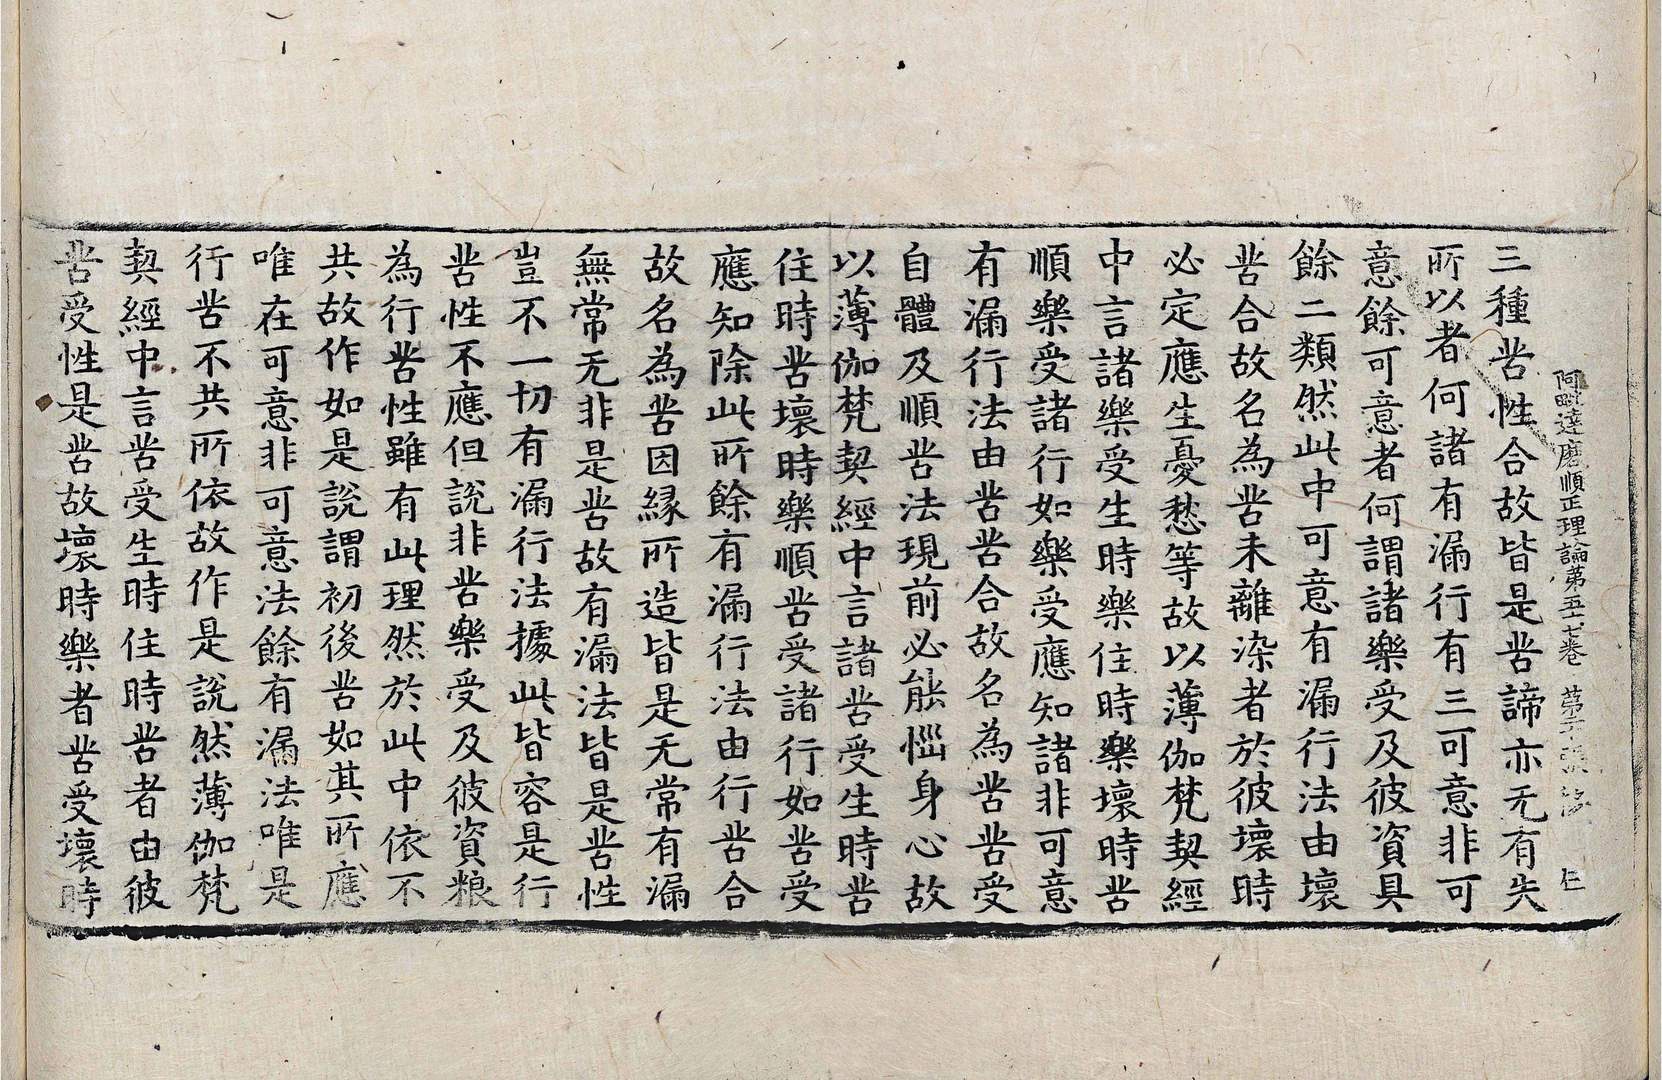 阿毗達磨順正理論第五十七卷 第十張 仁
三種苦性合故皆是苦諦亦无有失
所以者何諸有漏行有三可意非可
意餘可意者何謂諸樂受及彼資具
餘二類然此中可意有漏行法由壞
苦合故名為苦未離染者於彼壞時
必定應生憂愁等故以薄伽梵契經
中言諸樂受生時樂住時樂壞時苦
順樂受諸行如樂受應知諸非可意
有漏行法由苦苦合故名為苦苦受
自體及順苦法現前必能惱身心故
以薄伽梵契經中言諸苦受生時苦
住時苦壞時樂順苦受諸行如苦受
應知除此所餘有漏行法由行苦合
故名為苦因緣所造皆是无常有漏
無常无非是苦故有漏法皆是苦性
豈不一切有漏行法據此皆容是行
苦性不應但說非苦樂受及彼資粮
為行苦性雖有此理然於此中依不
共故作如是說謂初後苦如其所應
唯在可意非可意法餘有漏法唯是
行苦不共所依故作是說然薄伽梵
契經中言苦受生時住時苦者由彼
苦受性是苦故壞時樂者苦受壞時